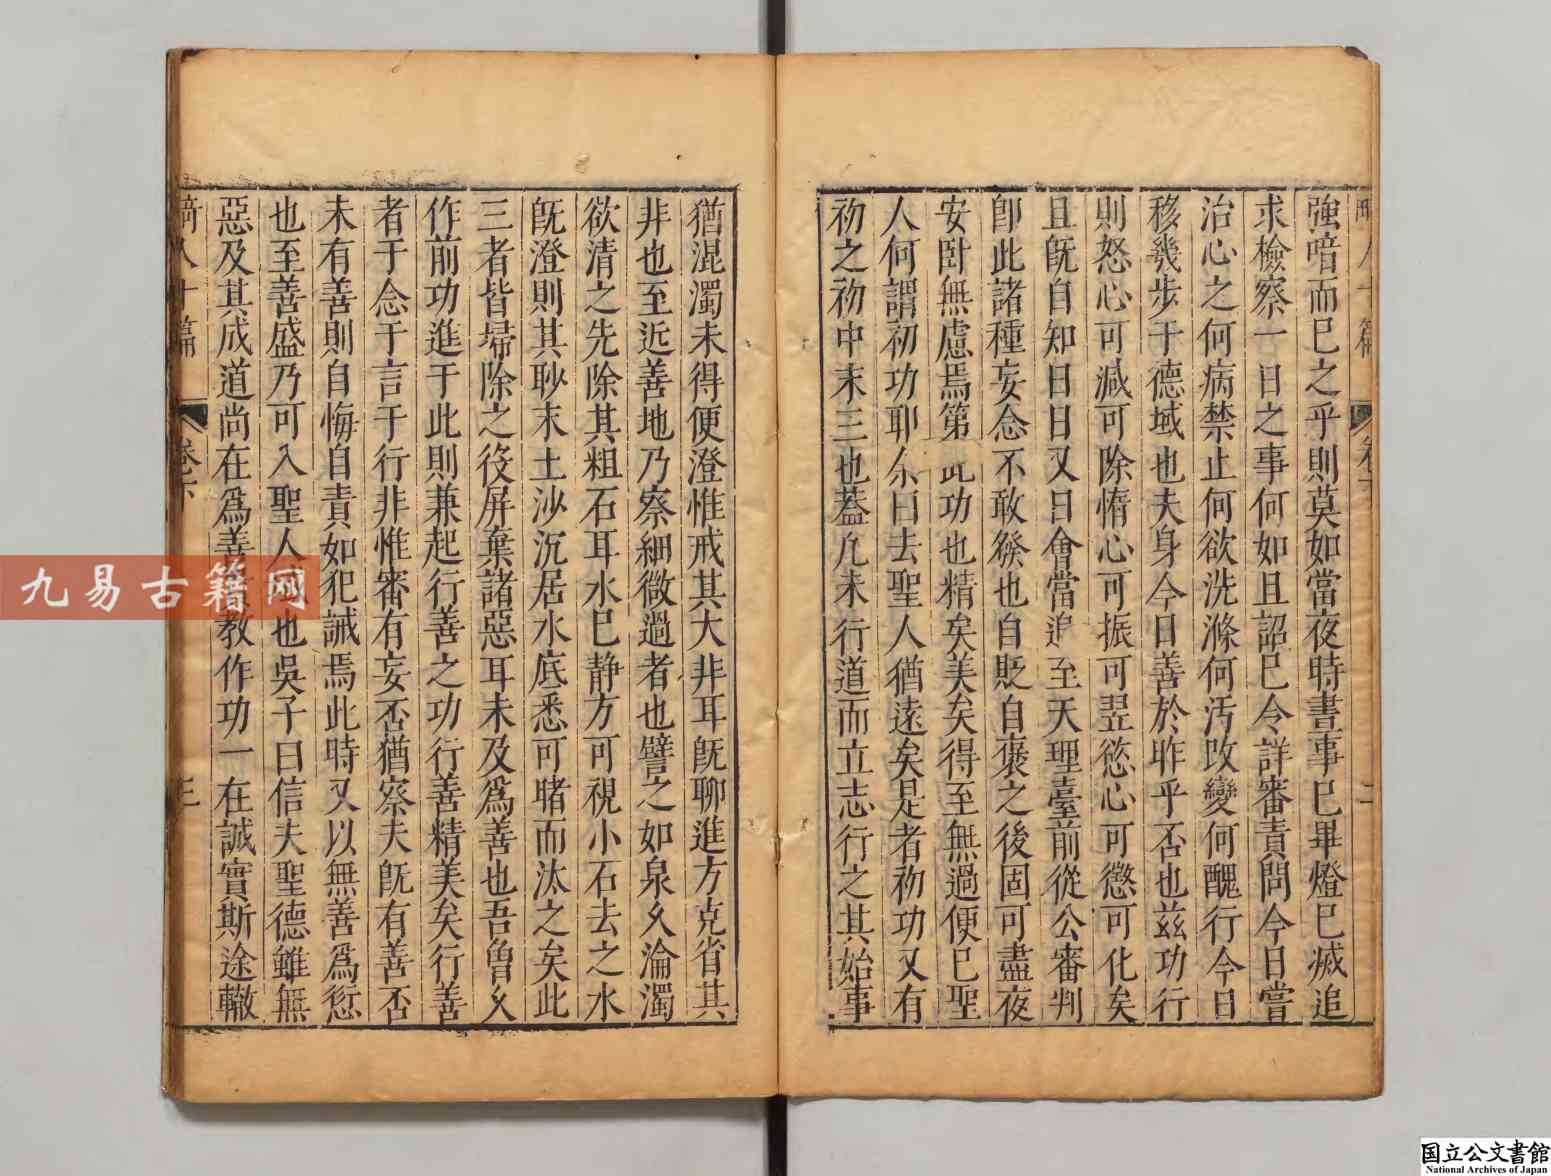 畸人十篇 卷下 二
強喑而巳之乎則莫如當夜時書事巳畢燈巳滅追
求檢察一日之事何如且詔巳今詳審責問今日嘗
治心之何病禁止何欲洗滌何汚改變何醜行今日
移幾步于德域也夫身今日善於昨乎否也茲功行
則怒心可減可除惰心可振可翌慾心可懲可化矣
且既自知日日又日會當追至天理臺前從公審判
卽此諸種妄念不敢發也自貶自褒之後固可盡夜
安卧無慮焉第此功也精矣美矣得至無過便巳聖
人何謂初功耶余曰去聖人猶遠矣是者初功又有
初之初中末三也蓋凡未行道而立志行之其始事
猶混濁未得便澄惟戒其大非耳既聊進方克省其
非也至近善地乃察細微過者也譬之如泉久淪濁
欲清之先除其粗石耳水巳静方可視小石去之水
既澄則其眇末土沙沉居水底悉可睹而汰之矣此
三者皆掃除之役屏棄諸惡耳未及爲善也吾曹久
作前功進于此則兼起行善之功行善精美矣行善
者于念于言于行非惟審有妄否猶察夫既有善否
未有善則自悔自責如犯誡焉此時又以無善爲愆
也至善盛乃可入聖人也吳子曰信夫聖德雖無
惡及其成道尚在爲善教作功一在誠實斯途轍
畸人十篇 卷下 三
九易古籍网
国立公文書館
National Archives of Japan